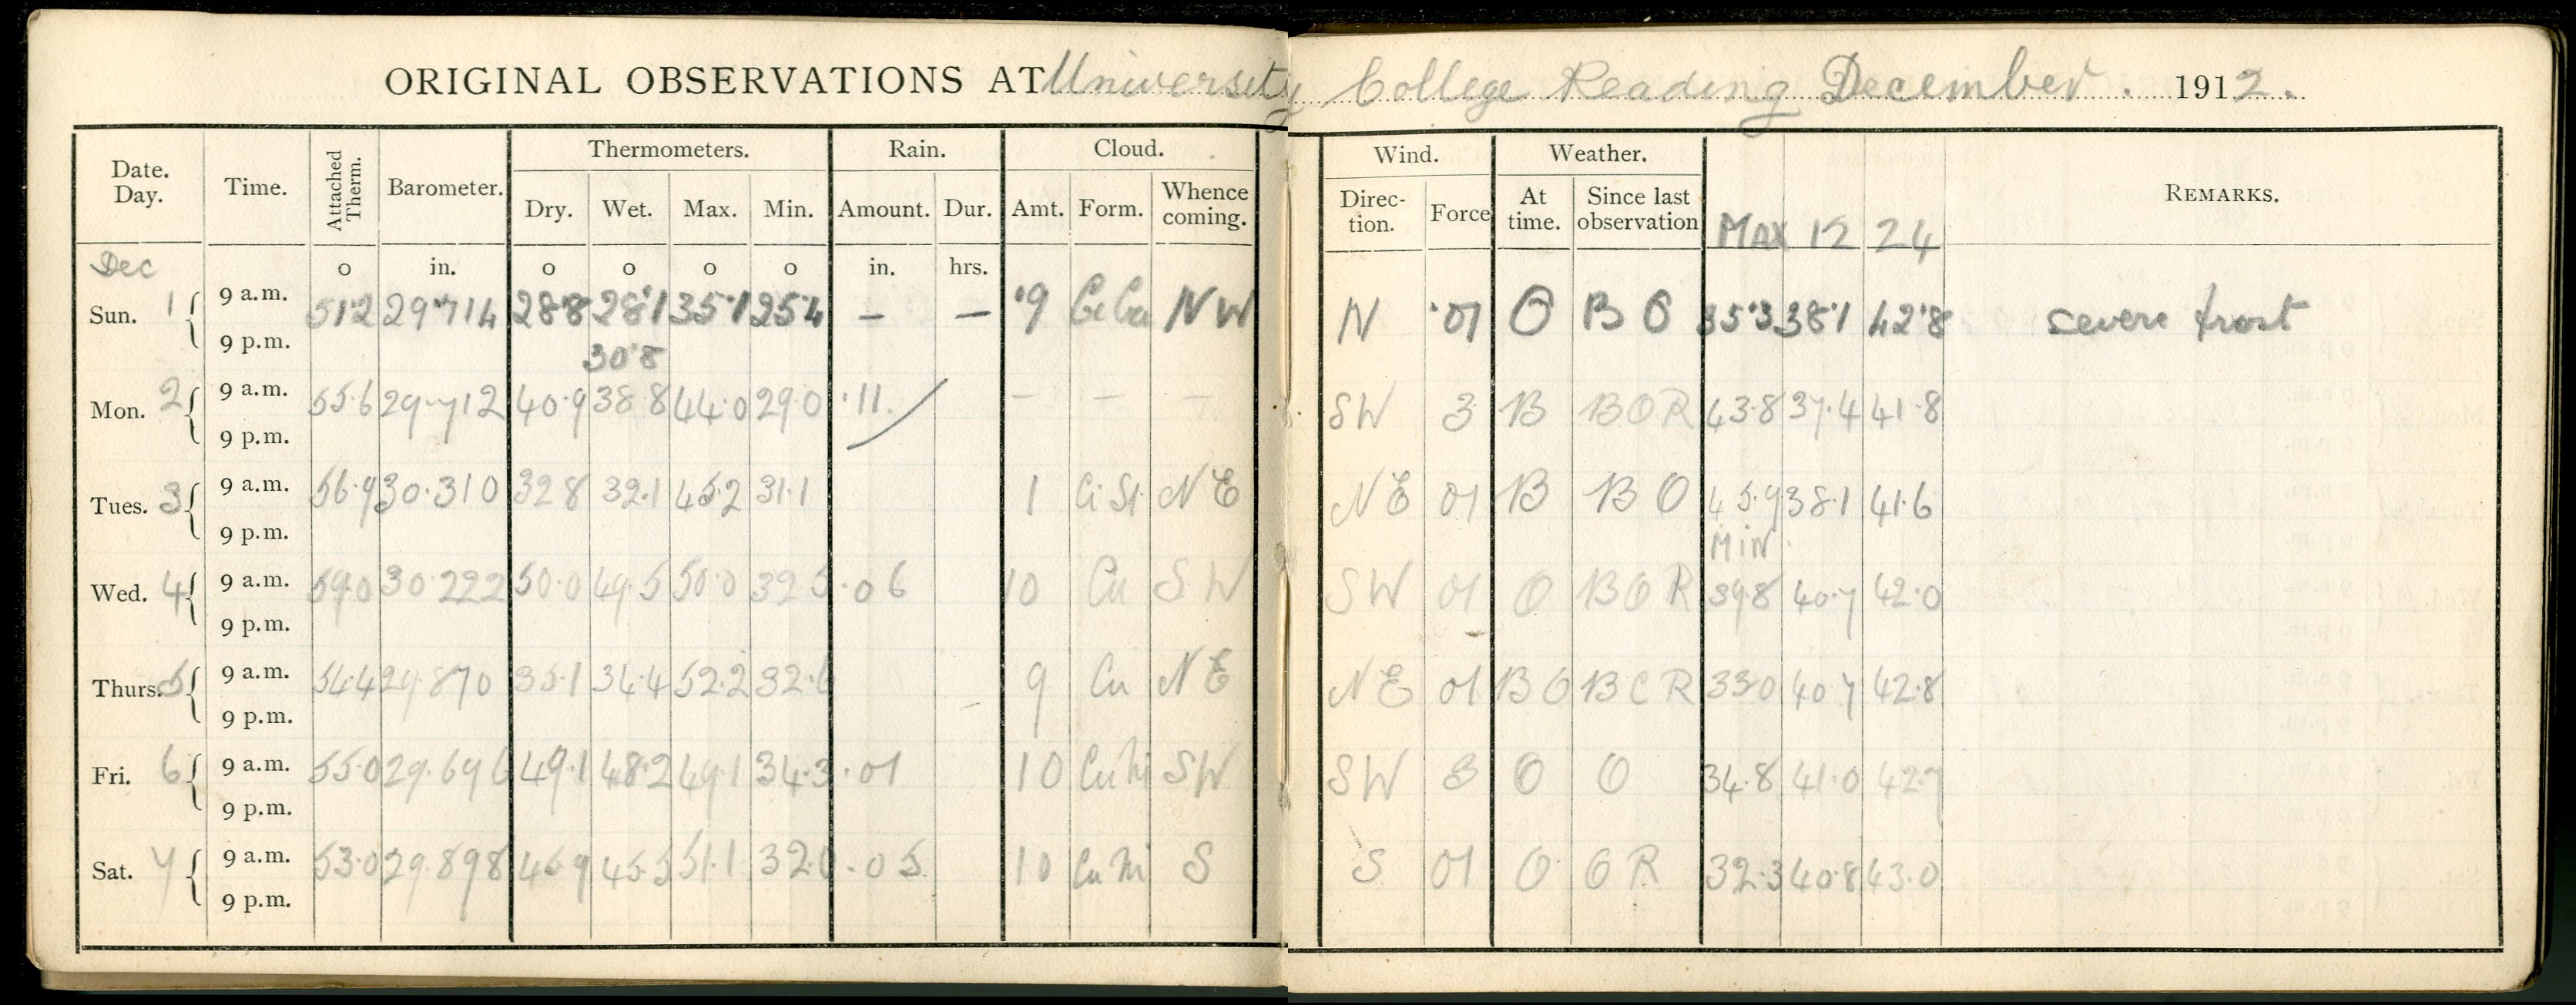 ORIGINAL OBSERVATIONS AT University College Reading December. 1912.
Date. Day. Time. Attached Therm. Barometer. Thermometers. Rain. Cloud. Wind. Weather. REMARKS.
Dry. Wet. Max. Min. Amount. Dur. Amt. Form. Whence coming. Direc-tion. Force At time. Since last observation MAX 12 24
Dec o in. o o o o in. hrs.
Sun. 1 9 a.m. 51.2 29.714 28.8 28.1 35.1 25.4 – – .9 NW N .01 O B O 35.3 38.1 42.8 severe frost
9 p.m. 30.8
Mon. 2 9 a.m. 55.6 29.712 40.9 38.8 44.0 29.0 .11 – – – SW 3 B B O R 43.8 37.4 41.8
9 p.m.
Tues. 3 9 a.m. 56.9 30.310 32.8 32.1 45.2 31.1 1 Ci St NE NE 01 B B O 45.9 38.1 41.6
9 p.m. MIN.
Wed. 4 9 a.m. 59.0 30.222 50.0 49.5 50.0 32.5 .06 10 Cu SW SW 01 O B O R 39.8 40.7 42.0
9 p.m.
Thurs. 5 9 a.m. 54.4 29.870 35.1 34.4 52.2 32.6 9 Cu NE NE 01 B O B C R 33.0 40.7 42.8
9 p.m.
Fri. 6 9 a.m. 55.0 29.696 49.1 48.2 49.1 34.3 .01 10 Cu Ni SW SW 3 O O 34.8 41.0 42.7
9 p.m.
Sat. 7 9 a.m. 53.0 29.898 45.9 45.5 51.1 32.0 .05 10 Cu Ni S S 01 O O R 32.3 40.8 43.0
9 p.m.